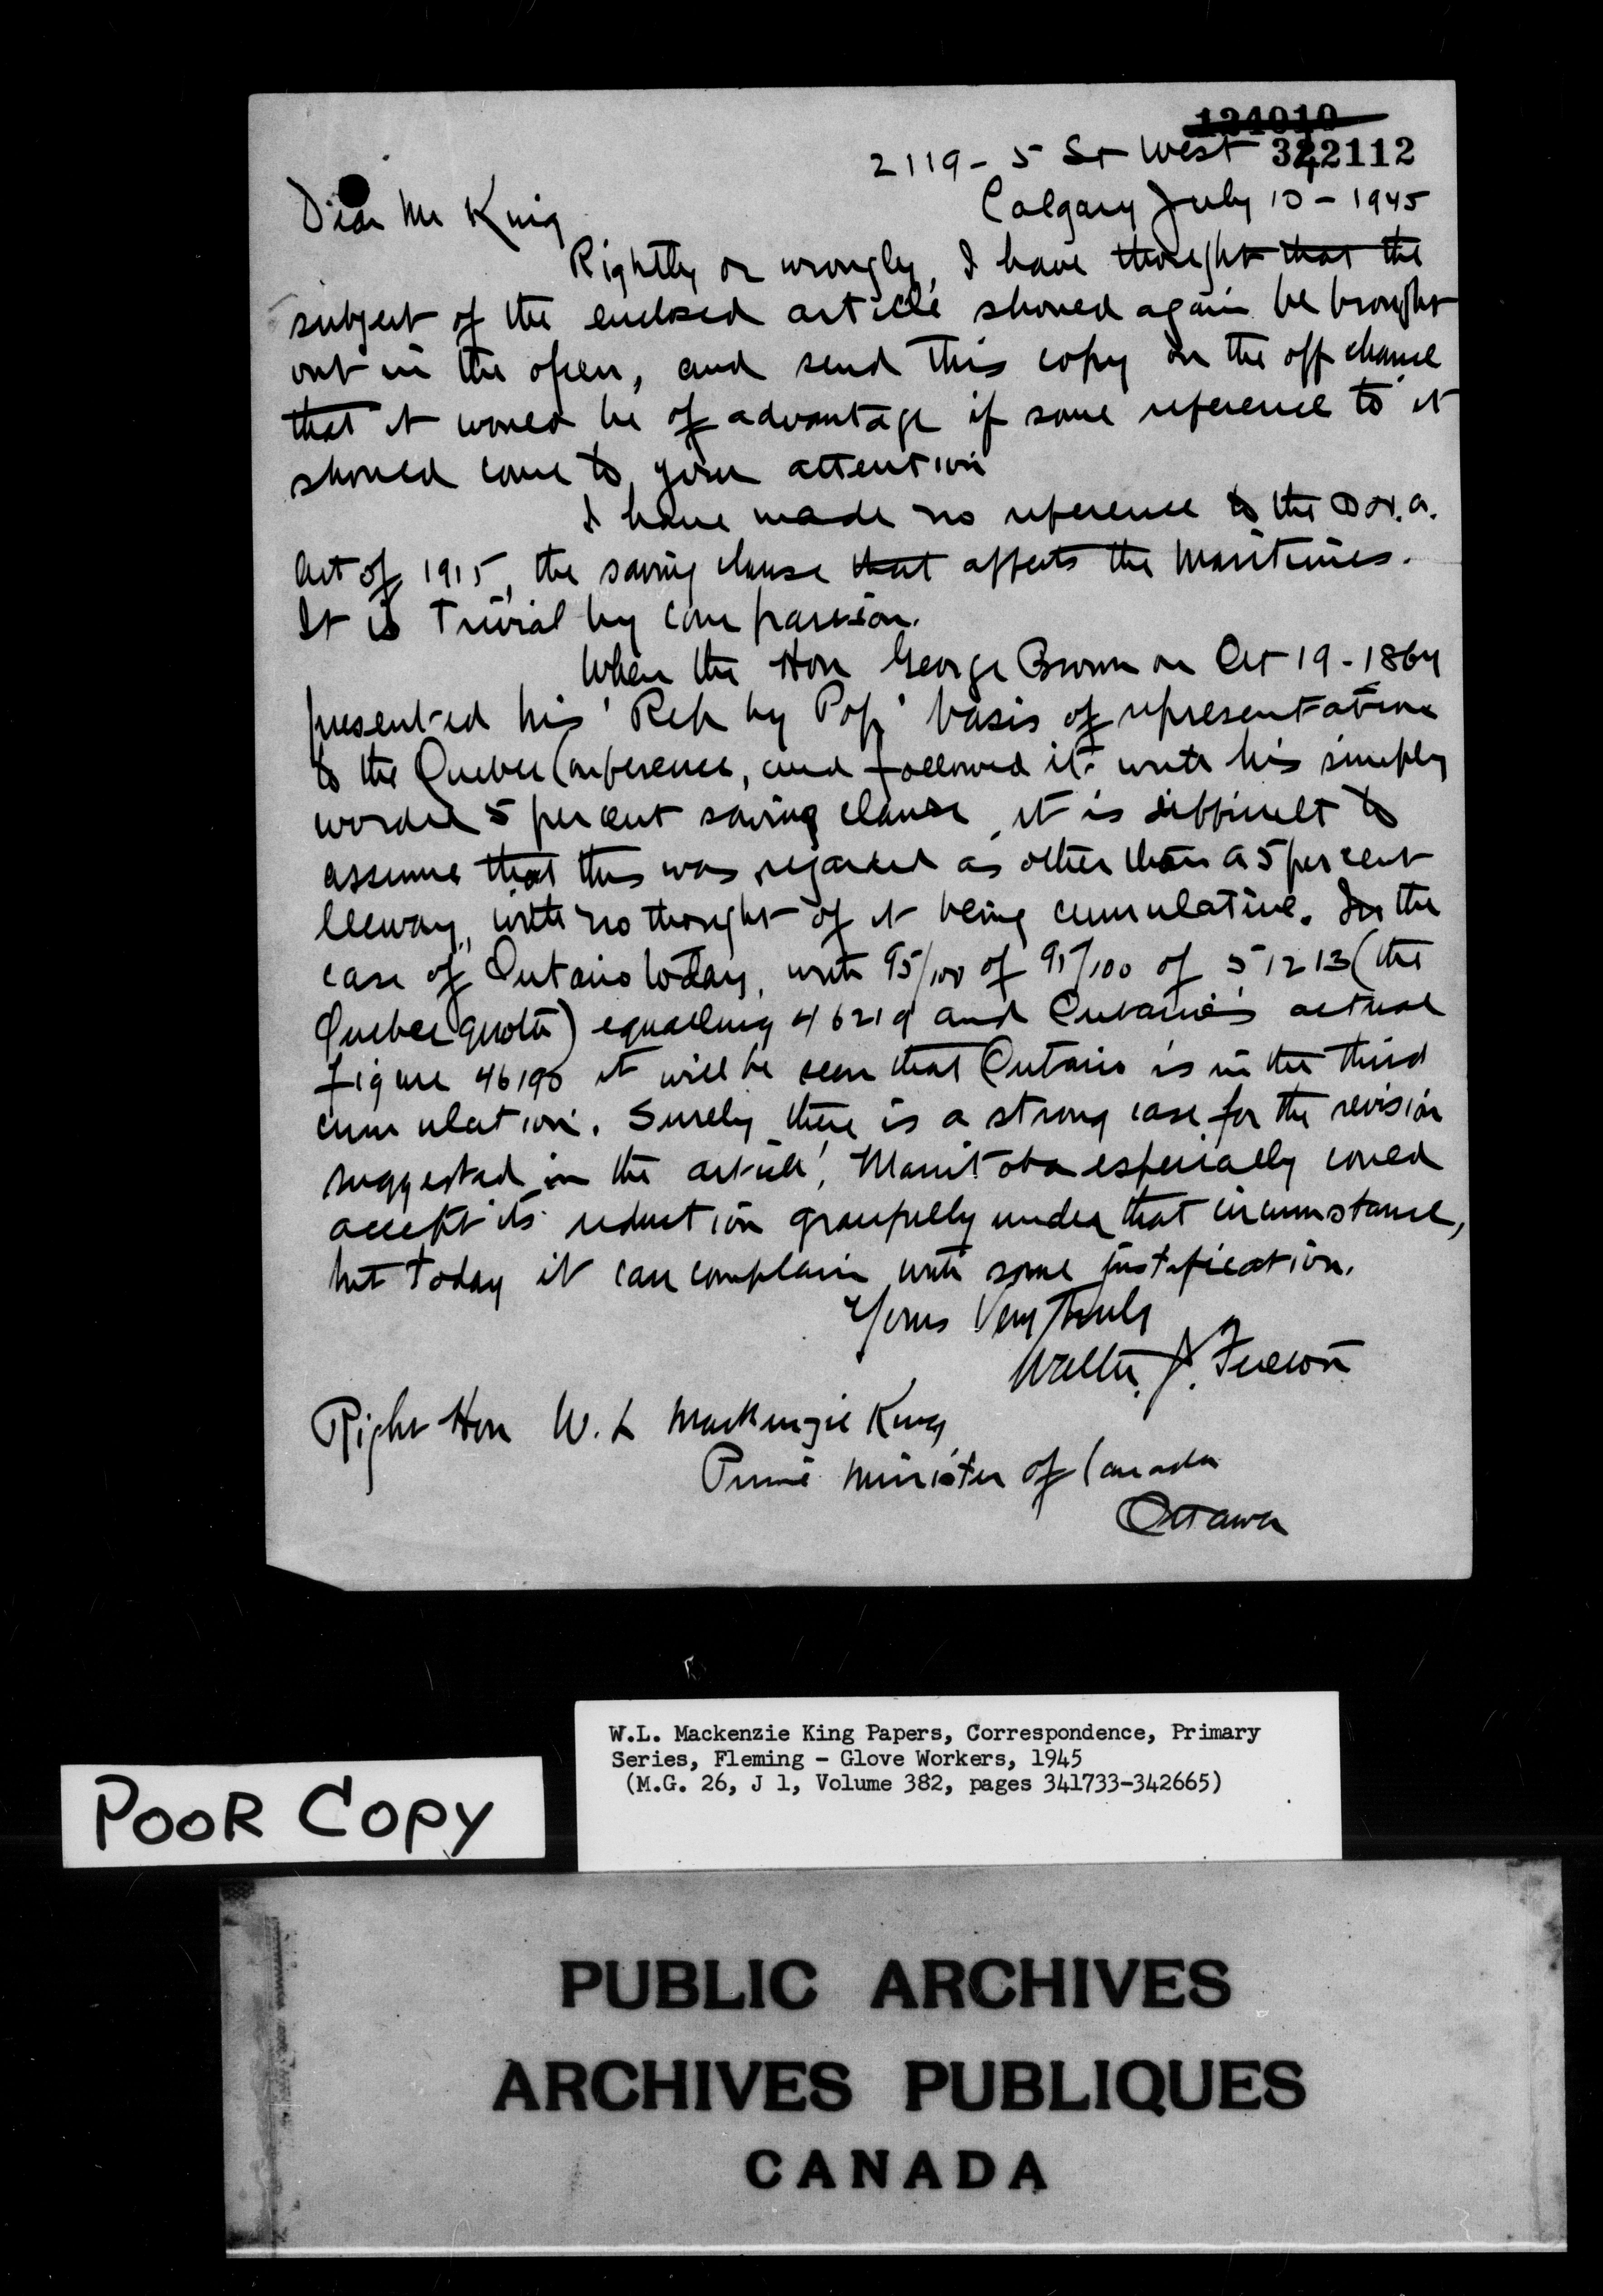 124010
2119 - 5 St West 342112
Calgary July 10 - 1945
Dear Mr King
Rightly or wrongly, I have thought that the
subject of the enclosed article should again be brought
out in the open, and send this copy on the off chance
that it would be of advantage if some reference to it
should come to your attention
I have made no reference to the B.N.A.
Act of 1915, the saving clause that affects the Maritimes.
It is trivial by comparison.
When the Hon George Brown on Oct 19 - 1864
presented his 'Rep by Pop' basis of representation
to the Quebec Conference, and followed it with his simply
worded 5 percent saving clause, it is difficult to
assume that this was regarded as other than a 5 per cent
leeway, with no thought of it being cumulative. In the
case of Ontario today, with 95/100 of 95/100 of 51213 (the
Quebec quota) equalling 46219 and Ontario's actual
figure 46190 it will be seen that Ontario is in the third
cumulation. Surely there is a strong case for the revision
suggested in the article! Manitoba especially could
accept its reduction gracefully under that circumstance,
but today it can complain with some justification.
Yours Very Truly
Walter J.
Right Hon W. L MacKenzie King
Prime Minister of Canada
Ottawa
W.L. Mackenzie King Papers, Correspondence, Primary
Series, Fleming - Glove Workers, 1945
(M.G. 26, J 1, Volume 382, pages 341733-342665)
POOR COPY
PUBLIC ARCHIVES
ARCHIVES PUBLIQUES
CANADA